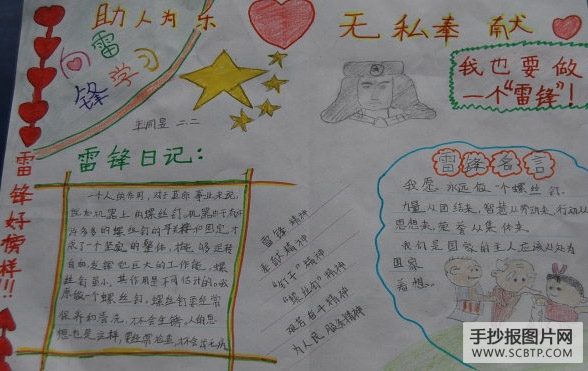 助人为乐
无私奉献
向雷
锋学习
我也要做
一个“雷锋”!
王同昱 二.二
雷锋好榜样!!!
雷锋日记:
一个人的作用,对于革命事业来说,
就如机器上的螺丝钉。机器由于有许
许多多的螺丝钉的联接和固定,才
成了个坚实的整体,才能够运转
自如,发挥它巨大的工作能。螺
丝钉虽小,其作用是不可估计的。我
愿做一个螺丝钉。螺丝钉要经常
保养和清洗,才不会生锈。人的思
想也是这样,要经常检查,才不会出毛病
雷锋精神
奉献精神
“钉子”精神
“螺丝钉”精神
艰苦奋斗精神
为人民服务精神
雷锋名言
我愿永远做一个螺丝钉.
力量从团结来,智慧从劳动来,行动从
思想来,荣誉从集体来。
我们是国家的主人应该处处为
国家
着想。
手抄报图片网
WWW.SCBTP.COM